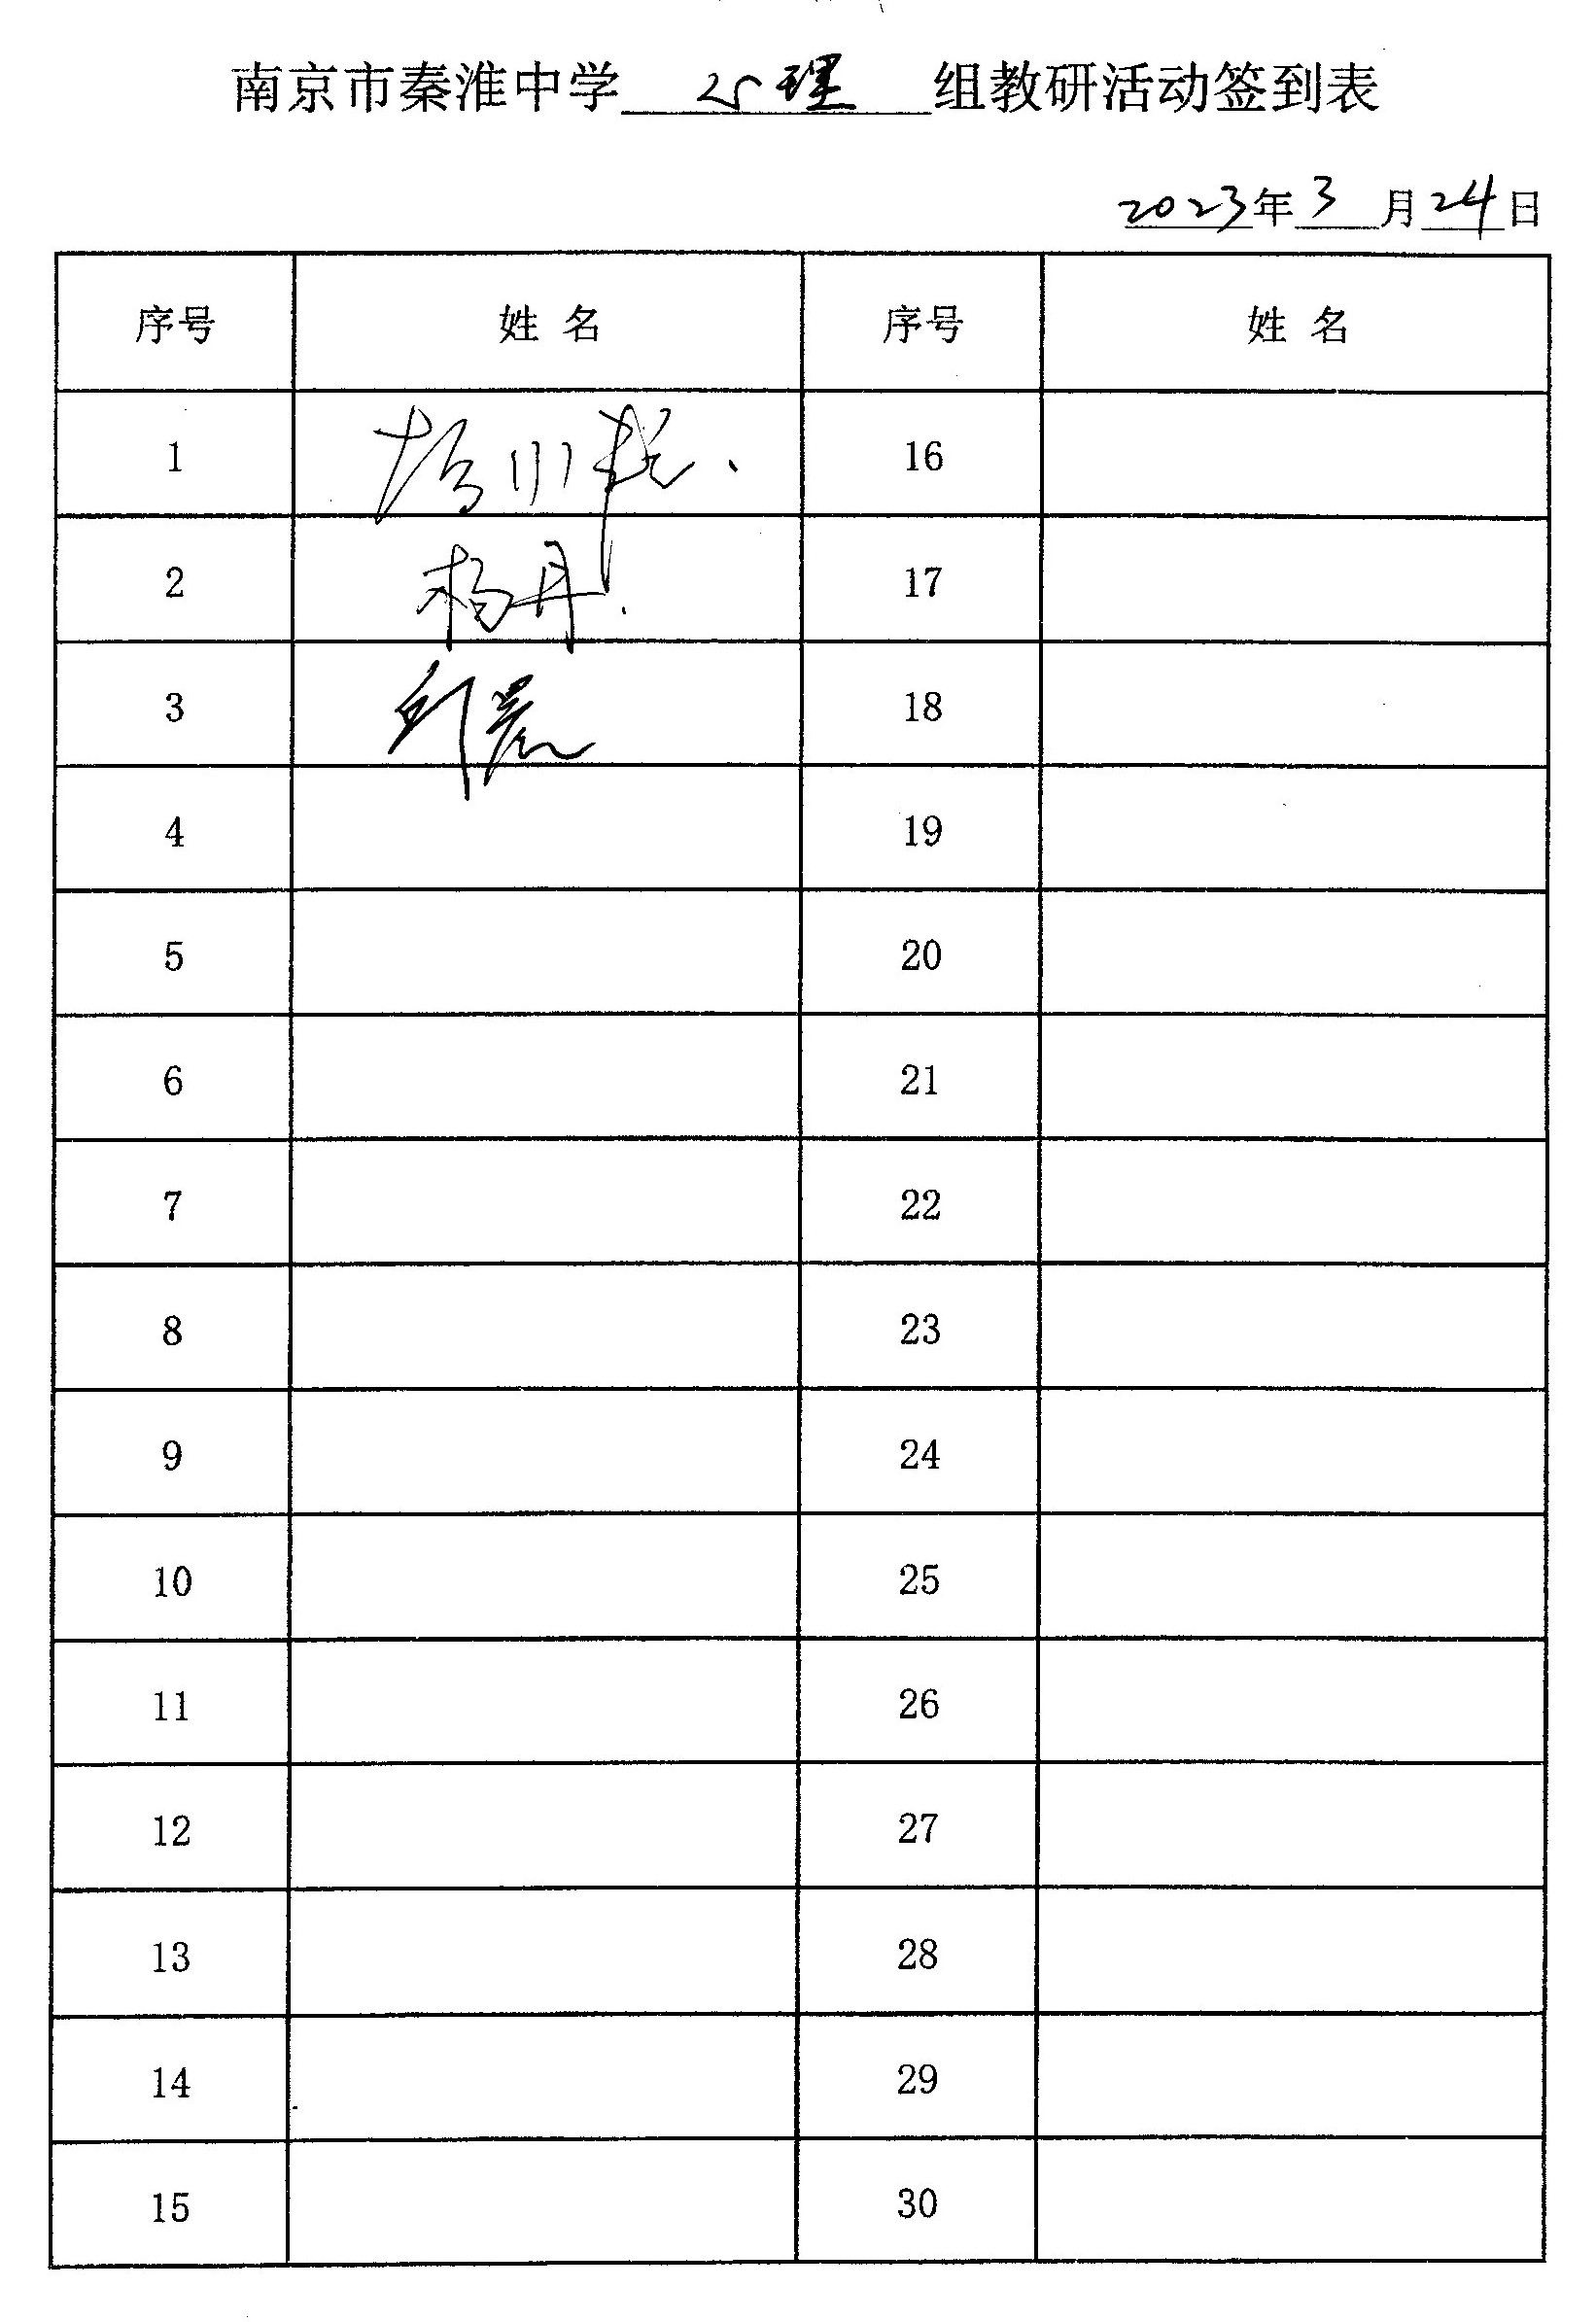 南京市秦淮中学 心理 组教研活动签到表
2023年3月24日
序号 姓名 序号 姓名
1 16
2 杨丹. 17
3 18
4 19
5 20
6 21
7 22
8 23
9 24
10 25
11 26
12 27
13 28
14 29
15 30